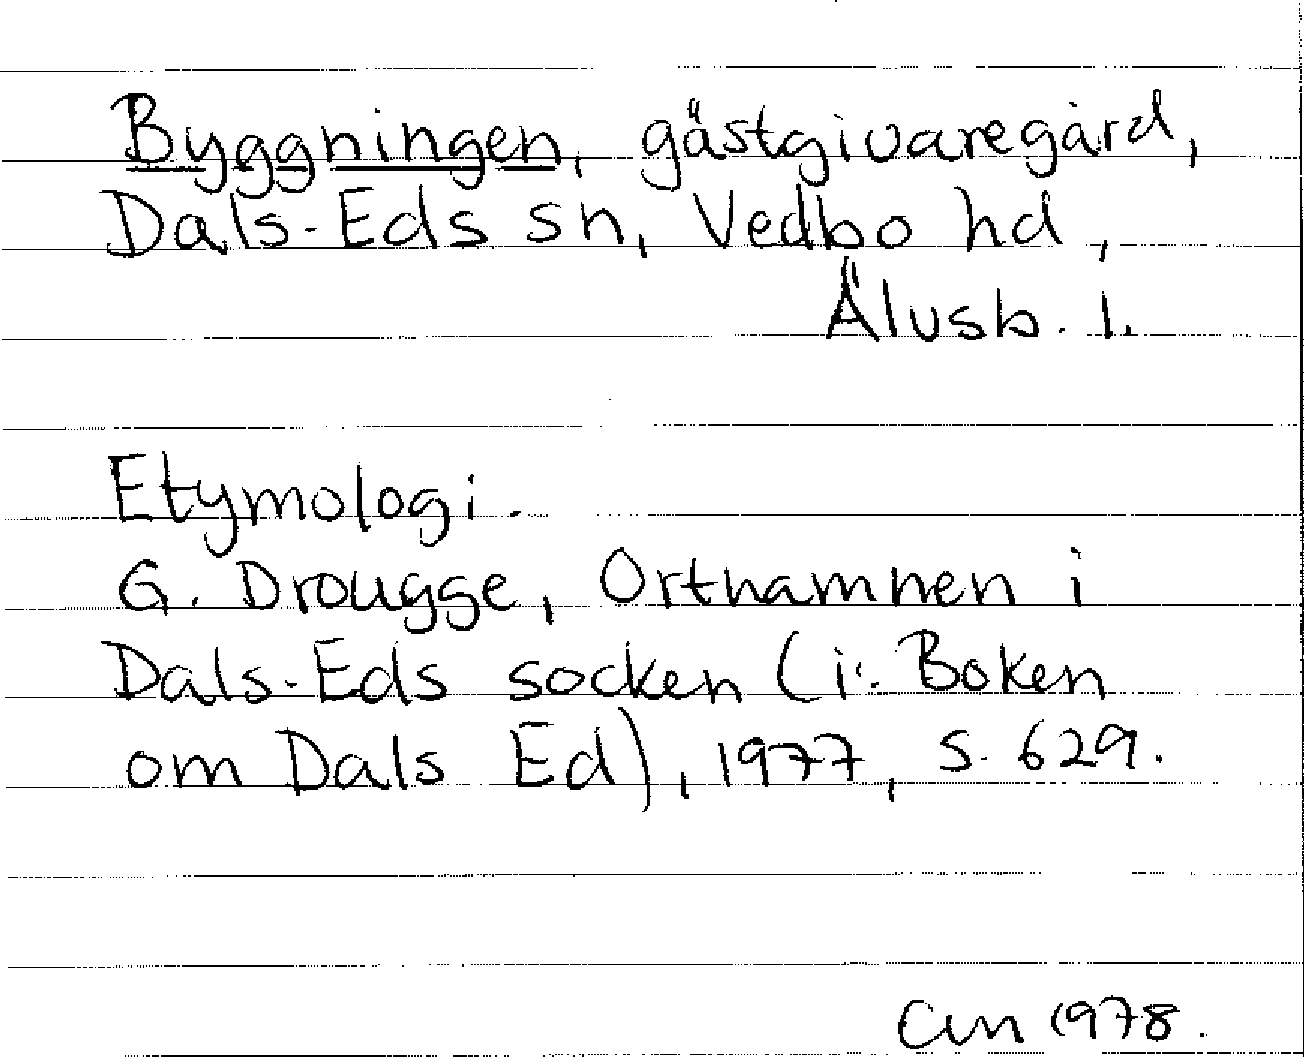 Byggningen, gästgivaregård,
Dals-Eds sn, Vedbo hd,
Älvsb. l.
Etymologi.
G. Drougge, Ortnamnen i
Dals-Eds socken (i: Boken
om Dals Ed), 1977, s. 629.
1978.